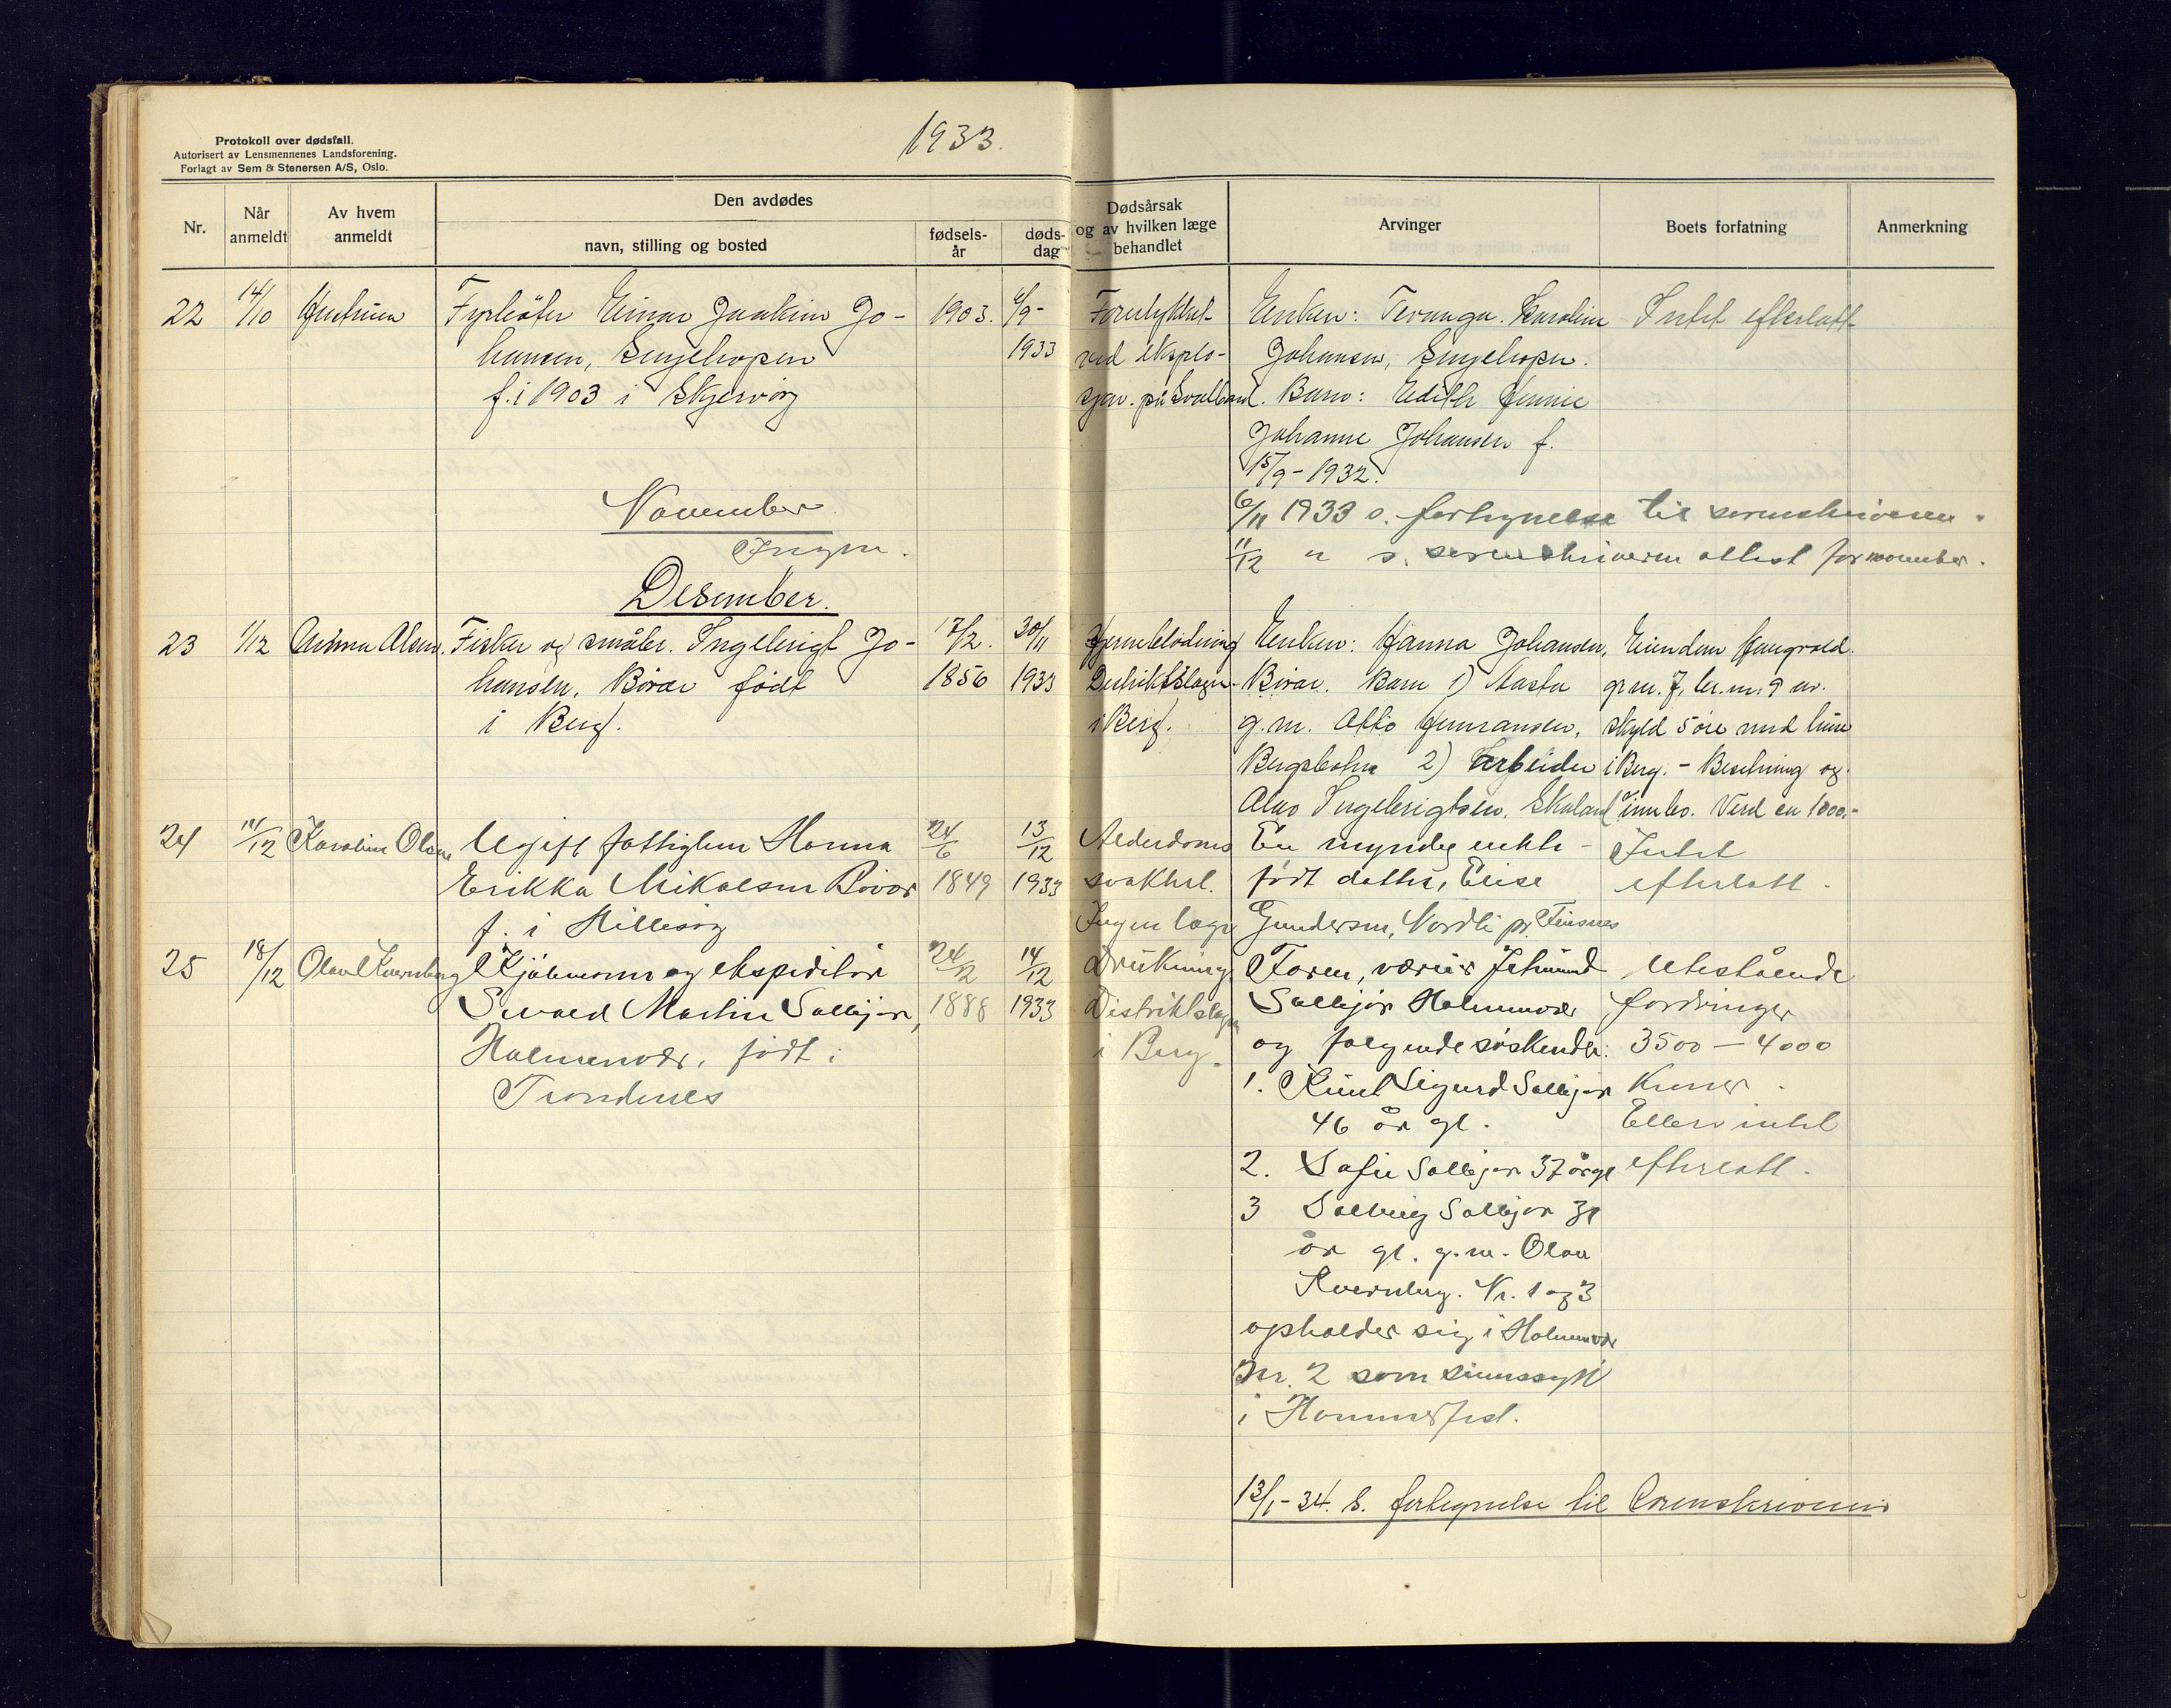 1933.
Protokoll over dødsfall.
Autorisert av Lensmennenes Landsforening.
Forlagt av Sem & Stenersen A/S, Oslo.
Nr.
Når anmeldt
Av hvem anmeldt
Den avdødes
navn, stilling og bosted
fødsels-år
døds-dag
Dødsårsak og av hvilken læge behandlet
Arvinger
Boets forfatning
Anmerkning
22 14/10 Hustruen Fyrbøter Einar Joakim Jo- 1903. 6/9- Forulykket Enken: Karoline Intet efterlatt
hansen, Engehopen 1933 ved eksplo- Johansen, Engehopen.
f. i 1903 i Skjervøy sjon på Svalbard. Barn: Edith Jennie
Johanne Johansen f.
15/9-1932.
November. 6/11 1933 s. fortegnelse til sorenskriveren.
Ingen. 11/12 " s. sorenskriveren attest for november.
Desember.
23 1/12 Fisker og småbr. Ingebrigt Jo- 17/2. 30/11 Hjerneblødning Enken: Hanna Johansen, Eiendom
hansen, Bøvær født 1856 1933 Distriktslægen Bøvær. Barn 1) Aasta gr.nr. 7, br.nr. 9 av
i Berg. i Berg. g.m. Otto skyld 5 øre med huse
Bergsbotn 2) Arbeider i Berg. - Besetning og
Ingebrigtsen, Skaland innbo. Verd ca 1000.-
24 14/12 Karoline Olsen Ugift fattiglem Hanna 24/6 13/12 Alderdoms En myndig uekte Intet
Erikka Mikalsen Bøvær 1849 1933 svakhet. født datter, Elise efterlatt.
f. i Hillesøy Ingen læge Gundersen, Nordli pr. Finsnes
25 18/12 Olav Kvernberg Kjøbmann og ekspeditør 24/12 14/12 Drukning Faren, væreier Utestående
Sollijor, 1888 1933 Distriktslægen Sollijor Holmenvær fordringer
Holmenvær, født i i Berg. og følgende søskende: 3500 — 4000
Trondenes 1. Knut Sigurd Sollijor Kroner.
46 år gl. Ellers intet
2. Sofie Sollijor 37 år gl efterlatt.
3 Solveig Sollijor 31
år gl. g.m. Olav
Kvernberg. Nr. 1 og 3
opholder sig i Holmenvær
Nr. 2 som sinnssyk
i Hammerfest.
13/1-34. s. fortegnelse til Sorenskriveren